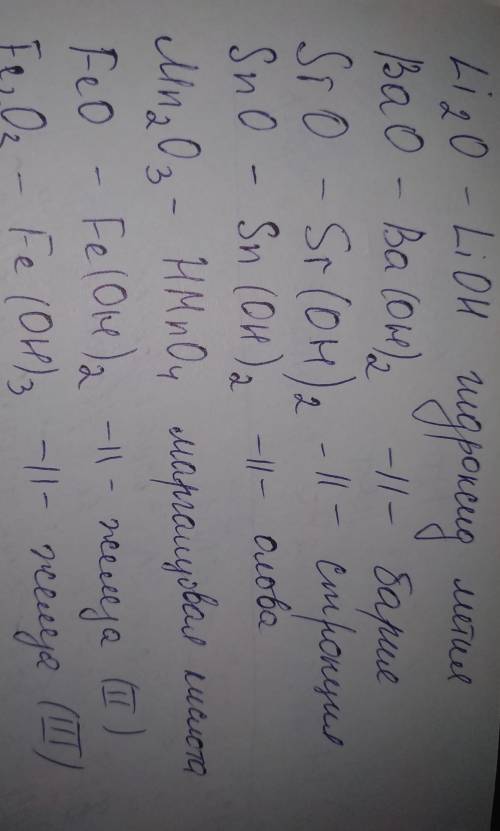 Li₂O - LiOH гидроксид лития
BaO - Ba(OH)₂ -||- бария
SrO - Sr(OH)₂ -||- стронция
SnO - Sn(OH)₂ -||- олова
Mn₂O₃ - HMnO₄ марганцовая кислота
FeO - Fe(OH)₂ -||- железа (II)
Fe₂O₂ - Fe(OH)₃ -||- железа (III)